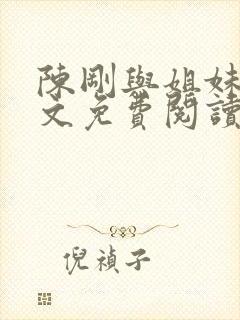 陳剛與姐妹
文免費閱讀
倪禎子